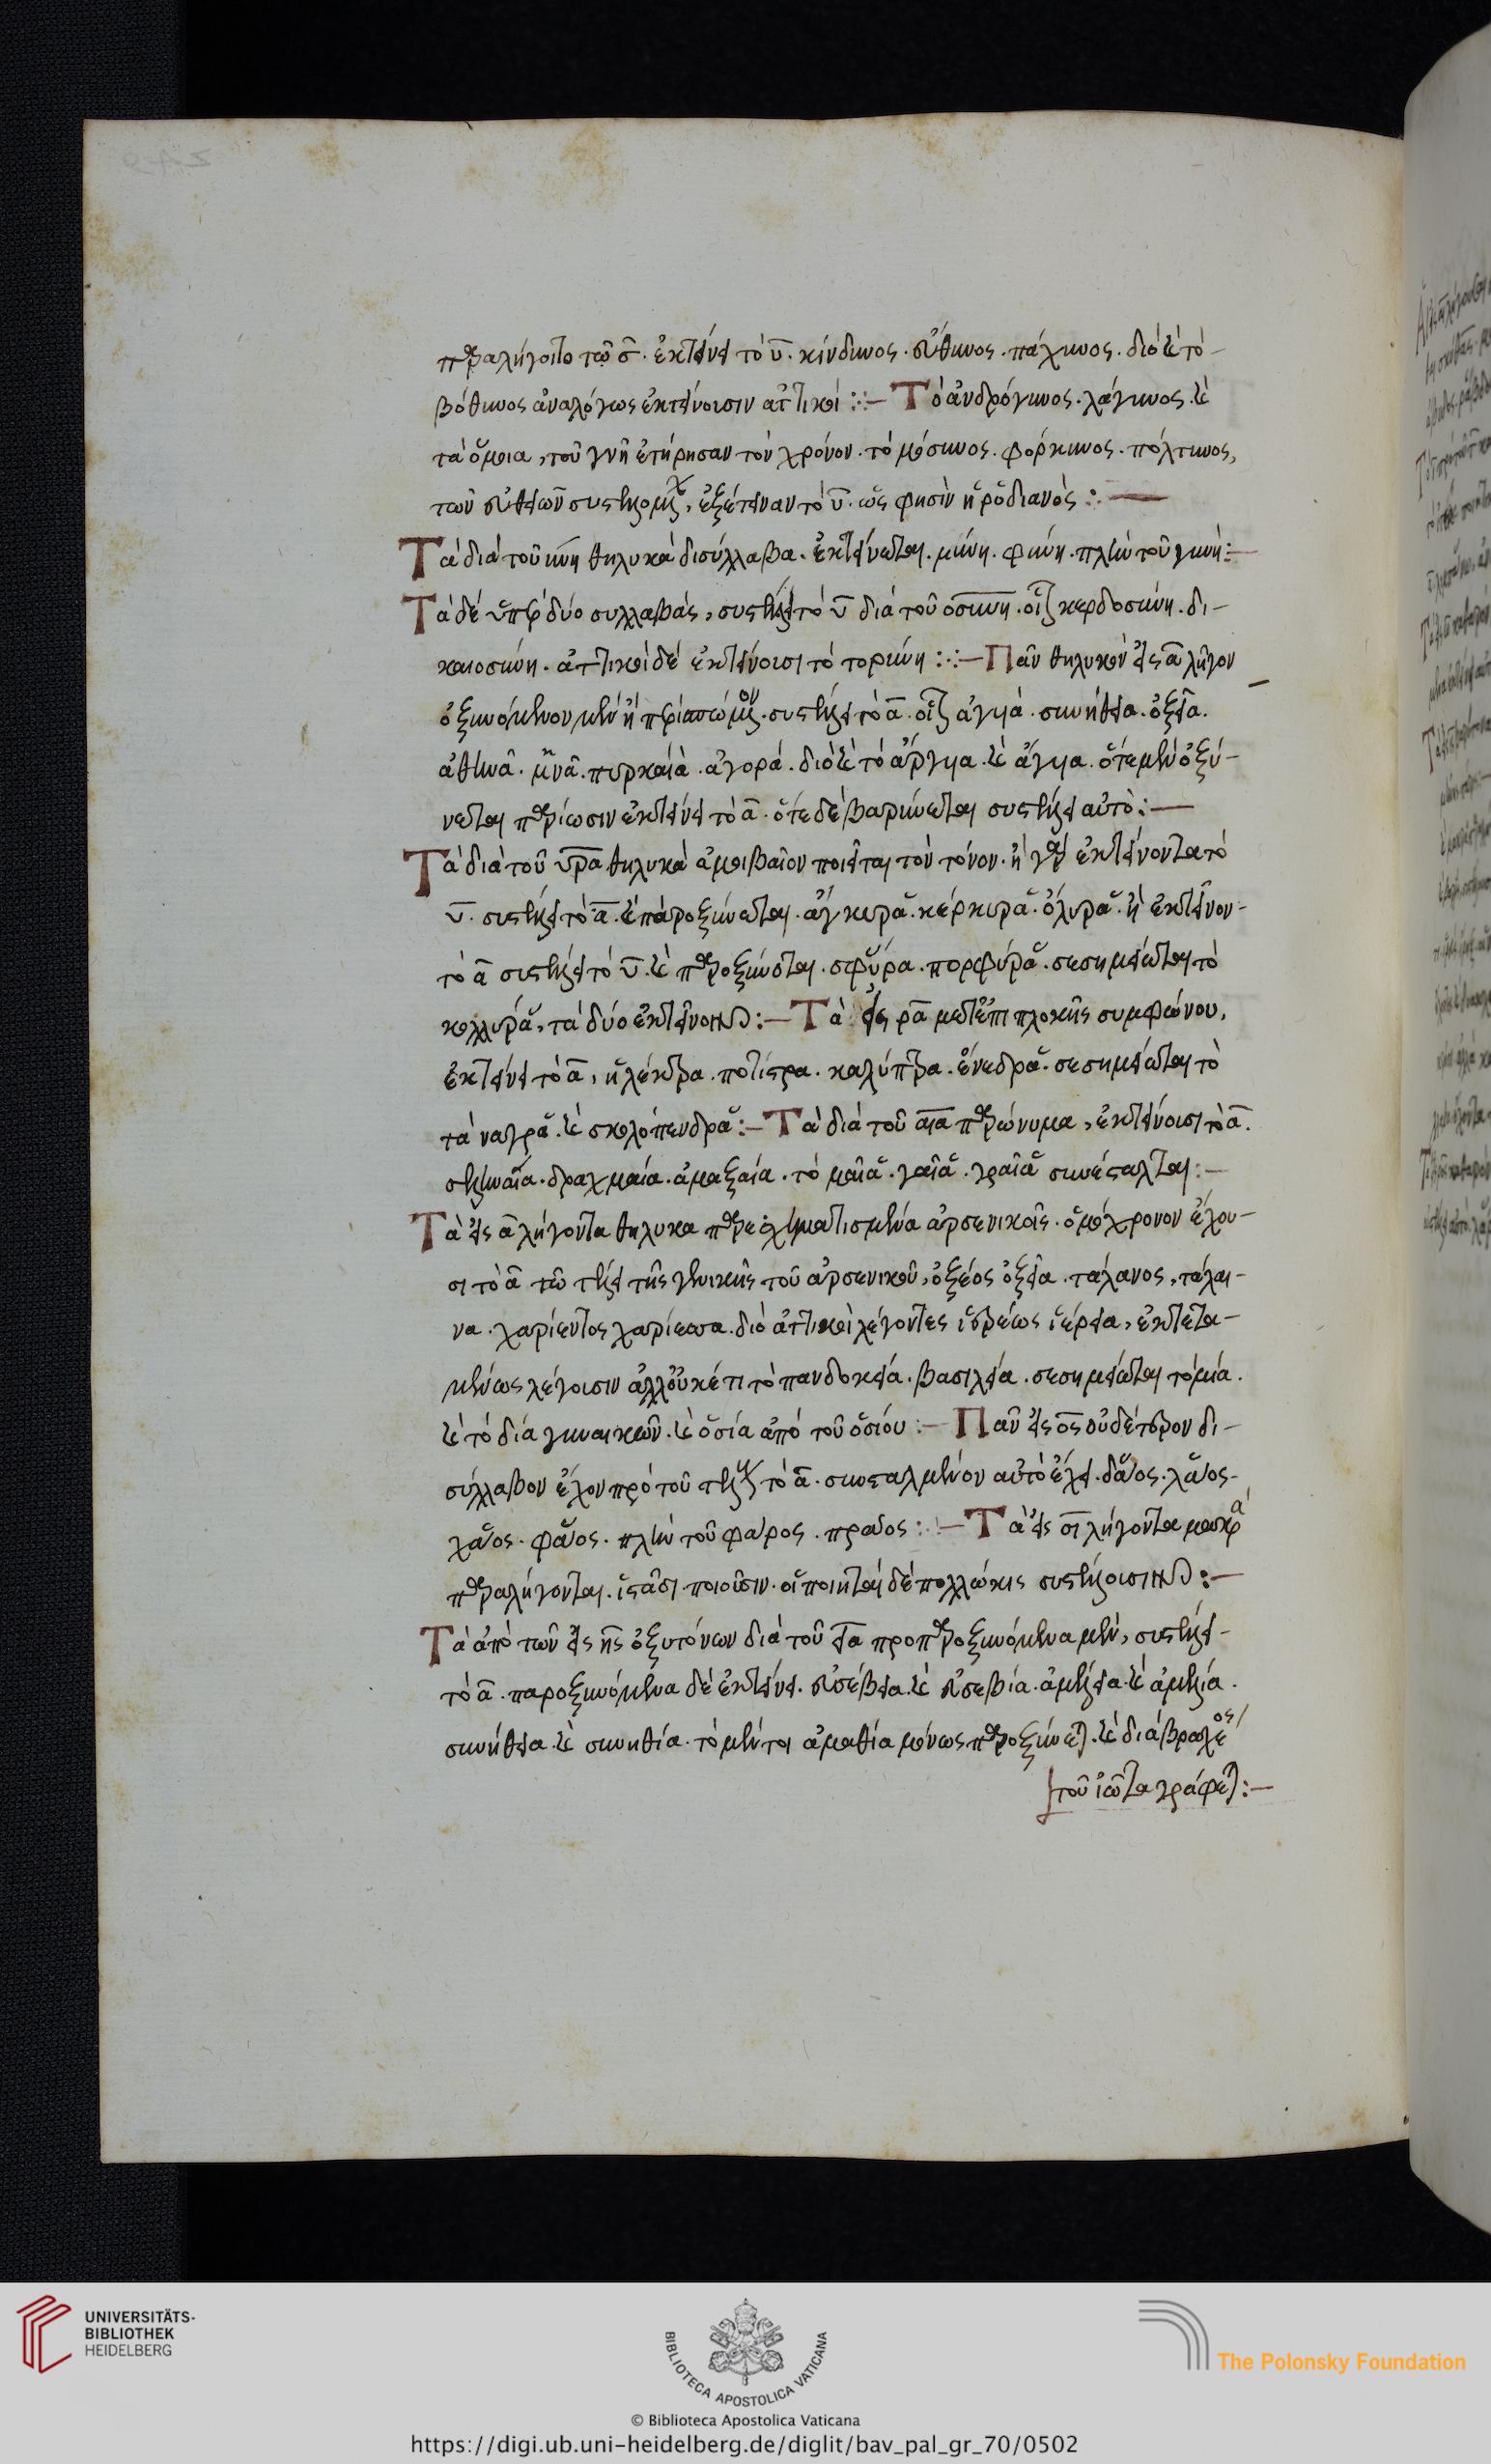 παραλήγοιτο τῶ σ̅. ἐκτείνει τὸ υ̅. κίνδυνος. εὔθυνος. πάχυνος. διὸ καὶ τὸ
βόθυνος ἀναλόγως ἐκτείνουσιν ἀττικοί :– Τὸ ἀνδρόγυνος. λάγυνος. καὶ
τὰ ὅμοια, τοῦ γυνὴ ἐτήρησαν τὸν χρόνον. τὸ μόσυνος. φόρκυνος. πόλτυνος,
τῶν εὐθειῶν συστελλομένων, ἐξέτειναν τὸ υ̅. ὥς φησὶν ἡρῳδιανός :–
Τὰ διὰ τοῦ υνη θηλυκὰ δισύλλαβα. ἐκτείνεται. μύνη. φύνη. πλὴν τοῦ γυνή :–
Τὰ δὲ ὑπὲρ δύο συλλαβὰς, συστέλλει τὸ υ̅ διὰ τοῦ οσυνη. οἷον κερδοσύνη. δι-
καιοσύνη. ἀττικοὶ δὲ ἐκτείνουσι τὸ τορύνη :– Πᾶν θηλυκὸν εἰς α̅ λῆγον
ὀξυνόμενον μὲν ἢ περισπώμενον. συστέλλει τὸ α̅. οἷον ἀγυιά. συνήθεια. ὀξεῖα.
ἀθηνᾶ. μνᾶ. πυρκαϊὰ. ἀγορά. διὸ καὶ τὸ ἄργυια. καὶ ἄγυια. ὅτε μὲν ὀξύ-
νεται περίωσιν ἐκτείνει τὸ α̅. ὅτε δὲ βαρύνεται συστέλλει αὐτό :–
Τὰ διὰ τοῦ υρα θηλυκὰ ἀμοιβαῖον ποιεῖται τὸν τόνον. ἢ γὰρ ἐκτείνοντα τὸ
υ̅. συστέλλει τὸ α̅. καὶ παροξύνεται. ἄγκυρα. κέρκυρα. ὄλυρα. ἢ ἐκτεῖνον
τὸ α̅ συστέλλει τὸ υ̅. καὶ παροξύνεται. σφύρα. πορφύρα. σεσημείωται τὸ
κολλυρά, τὰ δύο ἐκτεῖνον :– Τὰ εἰς ρα̅ μετ' ἐπιπλοκῆς συμφώνου,
ἐκτείνει τὸ α̅, ἠλέκτρα. πολίστρα. καλύπτρα. ἐνέδρα. σεσημείωται τὸ
τάναγρα. καὶ σκολόπενδρα :– Τὰ διὰ τοῦ αια παρώνυμα, ἐκτείνουσι τὸ α̅.
σεληναία. δραχμαία. ἁμαξαία. τὸ μαῖα. γαῖα. γραῖα συνέσταλται :–
Τὰ εἰς α̅ λήγοντα θηλυκα παρεσχηματισμένα ἀρσενικοῖς. ὁμόχρονον ἔχου-
σι τὸ α̅ τῶ τέλει τῆς γενικῆς τοῦ ἀρσενικοῦ, ὀξέος ὀξεῖα. τάλανος, τάλαι-
να. χαρίεντος χαρίεσσα. διὸ ἀττικοὶ λέγοντες ἱερέως ἱέρεια, ἐκτετα-
μένως λέγουσιν ἀλλ' οὐκέτι τὸ πανδοκεία. βασιλεία. σεσημείωται τὸ μία.
καὶ τὸ δία γυναικῶν. καὶ ὁσία ἀπὸ τοῦ ὁσίου :– Πᾶν εἰς ος οὐδέτερον δι-
σύλλαβον ἔχον πρὸ τοῦ τέλους τὸ α̅. συνεσταλμένον αὐτὸ ἔχει. δάος. λάος.
χάος. φάος. πλὴν τοῦ φαρος. πραος :– Τὰ εἰς σι̅ λήγοντα μακρᾶ
παραλήγονται. ἱστᾶσι. ποιοῦσιν. οἱ ποιηταὶ δὲ πολλάκις συστέλλουσιν :–
Τὰ ἀπὸ τῶν εἰς ης ὀξυτόνων διὰ τοῦ εια προπαροξυνόμενα μὲν, συστέλλει
τὸ α̅. παροξυνόμενα δὲ ἐκτείνει. εὐσέβεια. καὶ εὐσεβία. ἀμέλεια. καὶ ἀμελία.
συνήθεια. καὶ συνηθία. τὸ μέντοι ἀμαθία μόνως παροξύνεται. καὶ διὰ βραχέος
τοῦ ἰῶτα γράφεται :–
UNIVERSITÄTS-
BIBLIOTHEK
HEIDELBERG
BIBLIOTECA APOSTOLICA VATICANA
The Polonsky Foundation
© Biblioteca Apostolica Vaticana
https://digi.ub.uni-heidelberg.de/diglit/bav_pal_gr_70/0502